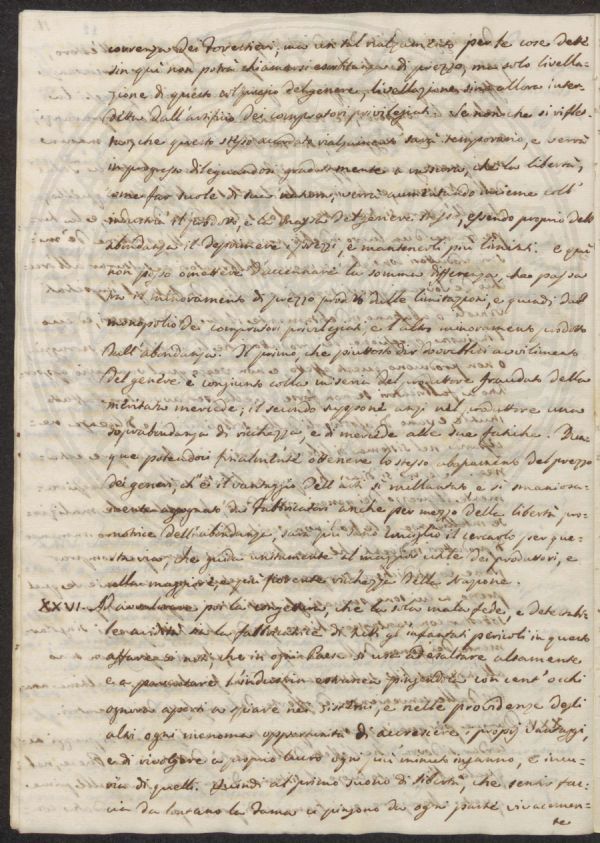 correnza dei Forestieri; ma un tal rialzamento per le cose dette
sin quì non potrà chiamarsi esorbitanza di prezzo, ma solo livella-
zione di questo col pregio del genere, livellazione sino allora inter-
detta dall'artifizio dei compratori privilegiati. Se non che si riflet-
ta, che questo stesso accordato rialzamento sarà temporario, e verrà
in progresso dileguandosi gradatamente a misura, che la libertà,
come far suole di sua natura, verrà aumentando insieme coll'
industria il prodotto, e la massa del genere stesso, essendo proprio dell'
abondanza il deprimere i prezzi, e mantenerli più limitati. E quì
non posso omettere d'accennare la somma differenza, che passa
tra il minoramento di prezzo prodotto dalle limitazioni, e quindi dal
monopolio dei compratori privilegiati e l'altro minoramento prodotto
dall'abondanza. Il primo, che piuttosto dir dovrebbesi avvilimento
del genere è congiunto colla miseria del produttore fraudato della
meritata mercede; il secondo suppone anzi nel produttore una
sovrabondanza di ricchezza, e di mercede alle sue fatiche. Dun-
que potendosi finalmente ottenere lo stesso abbassamento del prezzo
dei generi, ch'è il vantaggio dell'arti sì millantato e sì smaniosa-
mente agognato da Fabbricatori anche per mezzo della libertà pro-
motrice dell'abondanza, sarà più sano consiglio il cercarlo per que-
sta via, che guida unitamente al maggior utile dei produttori, e
alla maggiore, e più fiorente ricchezza della Nazione.
XXVI. Ad avvalorare poi la congettura, che la sola mala fede, e detestabi-
le avidità sia la fabbricatrice di tutti gl'infantati pericoli in questo
affare si noti che in ogni Paese si usa ad esaltare altamente
e a paventare l'industria estranea pingendola con cent'occhi
ognora aperti a spiare nei sistemi, e nelle providenze degli
altri ogni menoma opportunità di accrescere i proprj vantaggi,
e di rivolgere a proprio lucro ogni più minuto inganno, e incu-
ria di quelli. Quindi al primo suono di libertà, che senta fac-
cia da lontano la Fama ci pingono da ogni parte vivacemen-
te